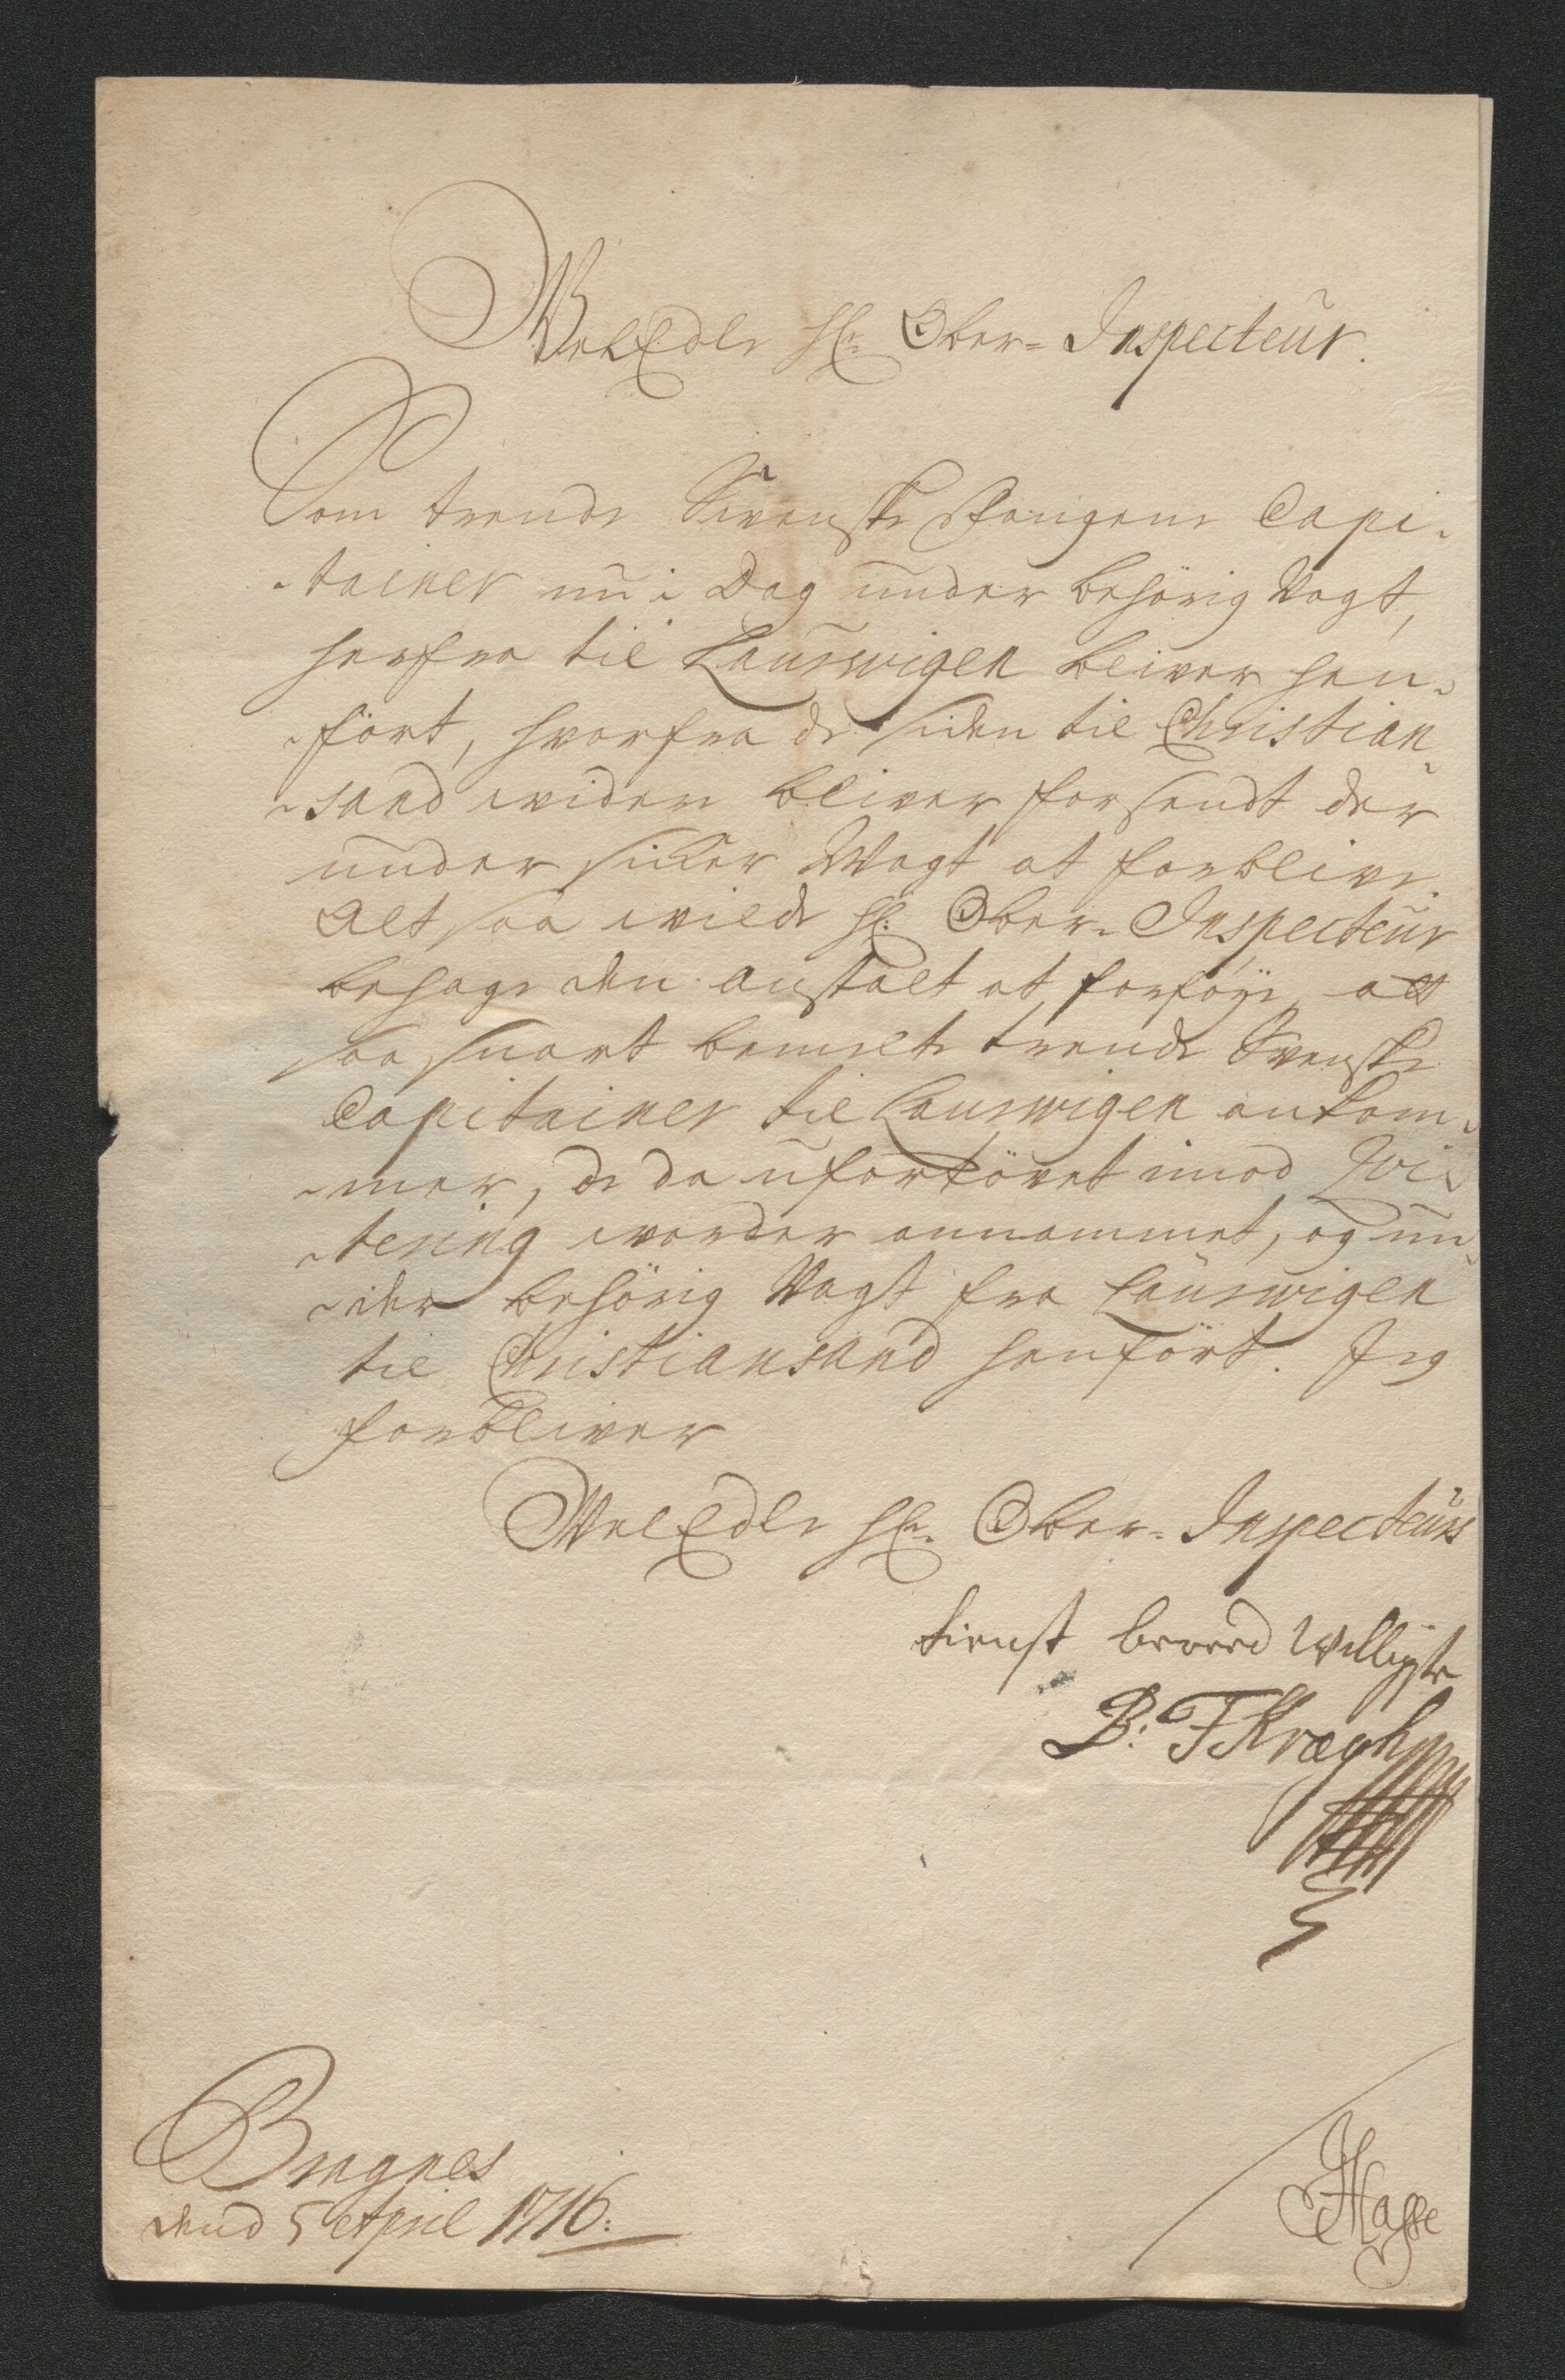 WelEdle Hr: Ober=Inspecteur.
Som trende Swenske Fangene Capi-
-tainer nu i Dag under behörig Vagt,
herfra til Laurwigen bliver hen-
-fört, hvorfra de siden til Christian-
-sand widere bliver forsendt der
under sicker Wagt at forblive.
Alt saa wilde Hr: Ober-Inspecteur
behage den anstalt at forföye, at
saa snart bemelte trende Svenske
Capitainer til Laurwigen ankom-
-mer, de da ufortövet imod Qvi-
-tering worder annammet, og un-
-der behörig Vagt fra Laurwigen
til Christiansand henfört. Jeg
forbliver
WelEdle Hr. Ober-Inspecteurs
tienst bereed Willigste
B: F Kragh
Bragnes
dend 5 April 1716: